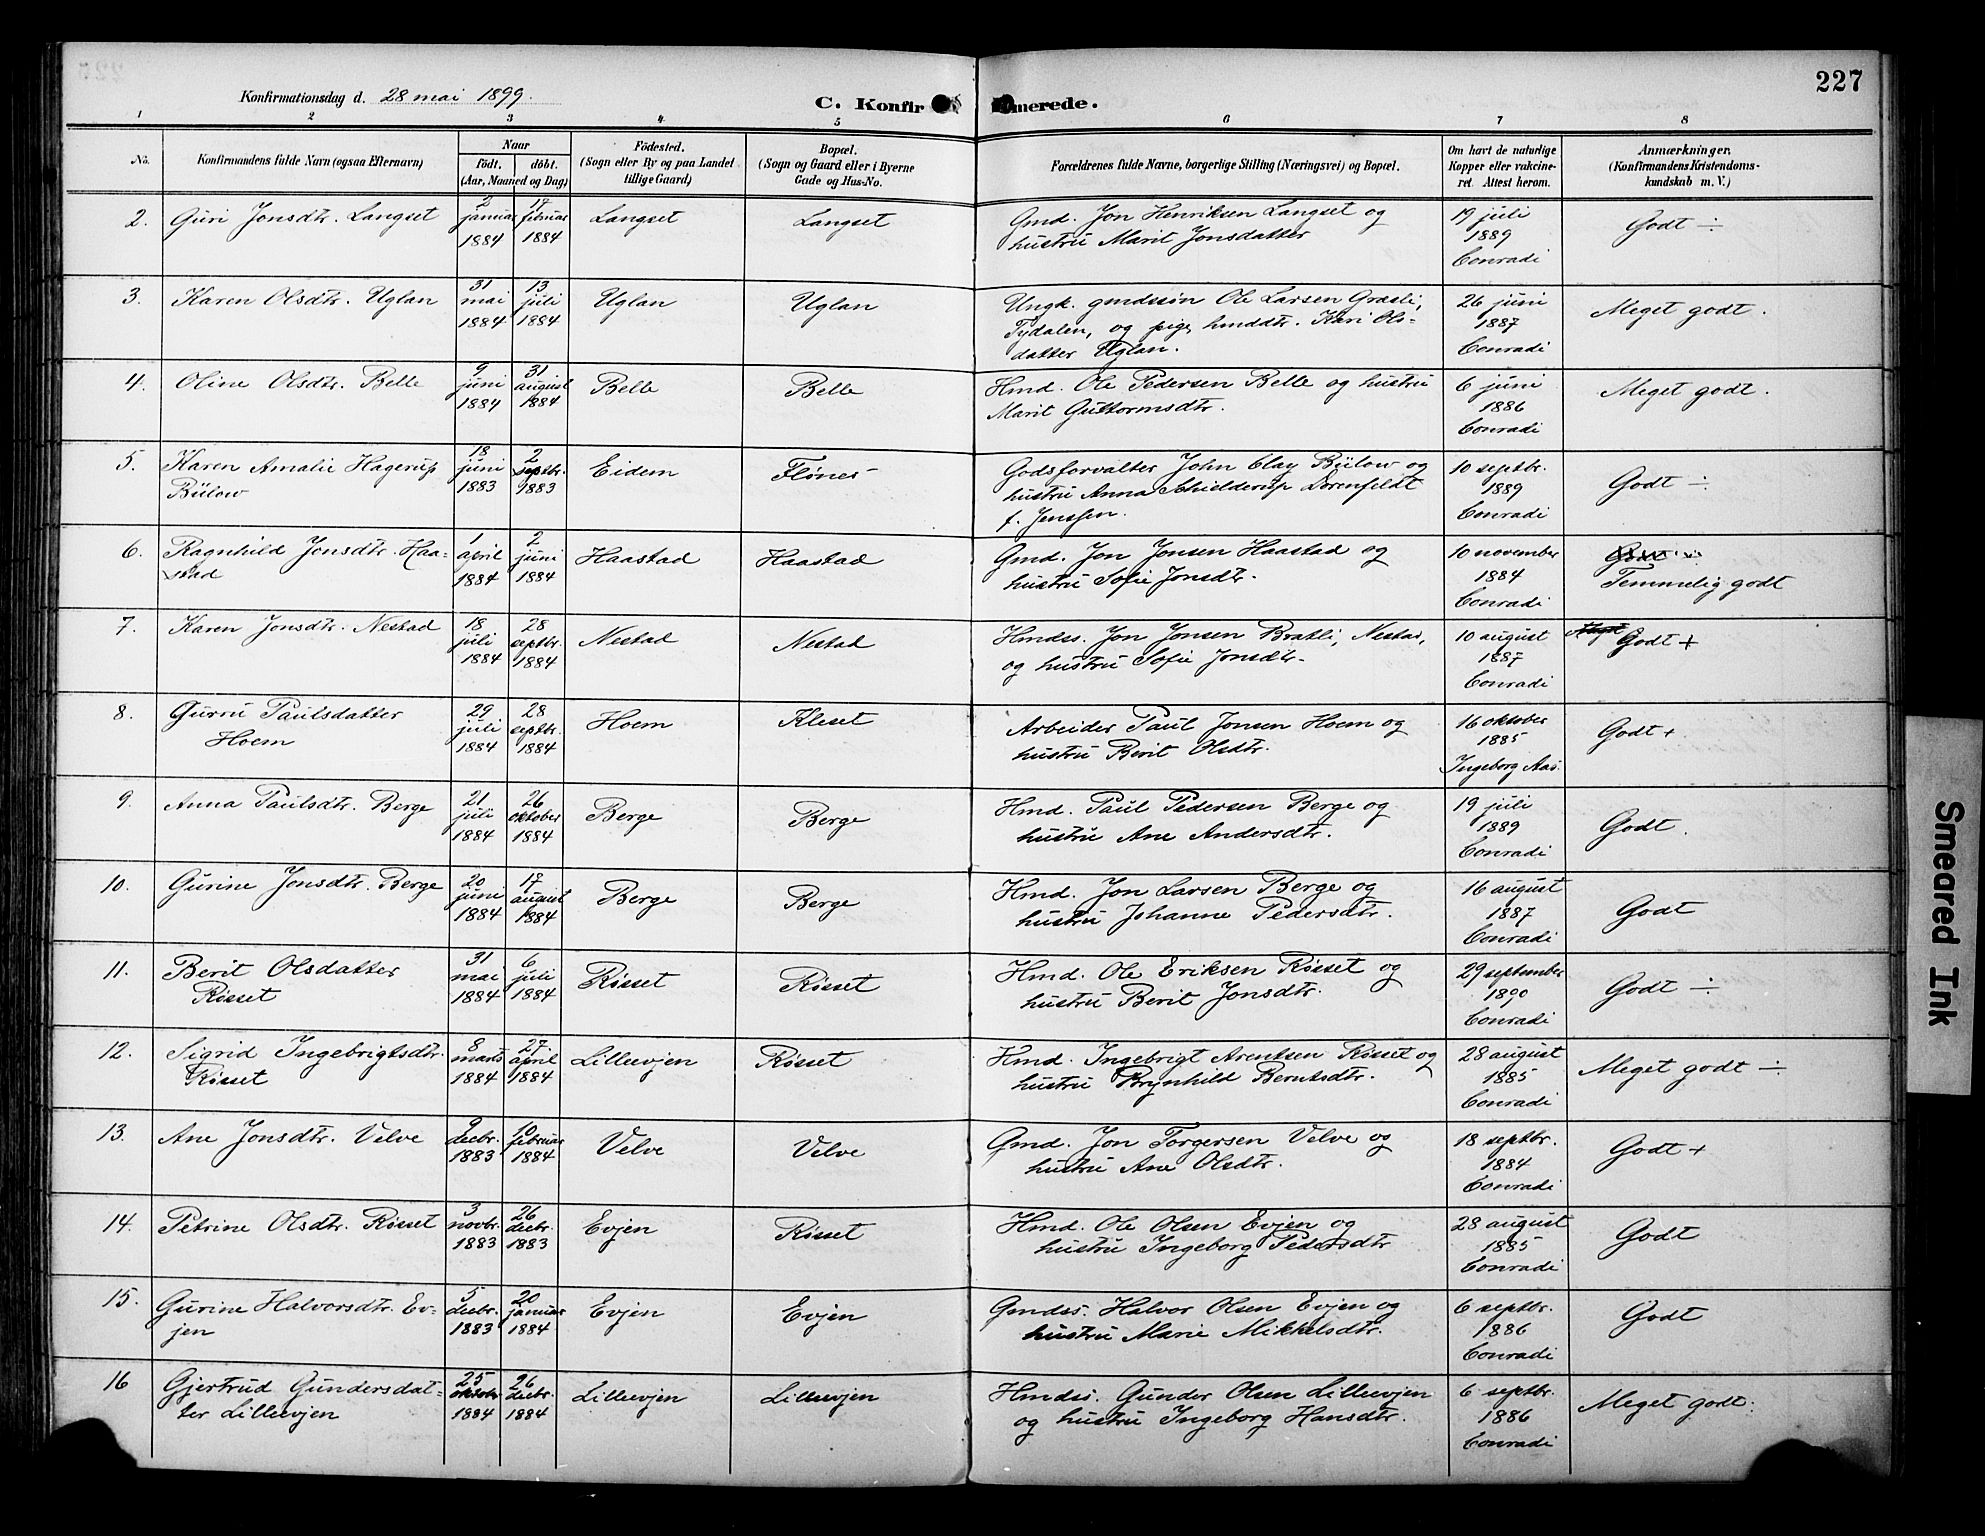 227
Konfirmationsdag d. 28 mai 1899.
C. Konfir merede.
1 2 3 4 5 6 7 8
No.
Konfirmandens fulde Navn (ogsaa Efternavn)
Naar
födt. döbt.
(Aar, Maaned og Dag)
Födested.
(Sogn eller By og paa Landet
tillige Gaard)
Bopæl.
(Sogn og Gaard eller i Byerne
Gade og Hus-No.
Forældrenes fulde Navne, borgerlige Stilling (Næringsvei) og Bopæl.
Om havt de naturlige
Kopper eller vakcine-
ret. Attest herom.
Anmærkninger.
(Konfirmandens Kristendoms-
kundskab m. V.)
2. Guri Jonsdtr. Langset
2 januar 1884
17 februar 1884
Langset
Langset
Gmd. Jon Henriksen Langset og
hustru Marit Jonsdatter
19 juli
1889
Conradi
Godt ÷
3. Karen Olsdtr. Uglan
31 mai 1884
13 juli 1884
Uglan
Uglan
Ungk. gmdssøn Ole Larsen Græsli,
Tydalen, og pige hmddtr. Kari Ols-
datter Uglan.
26 juni
1887
Conradi
Meget godt.
4. Oline Olsdtr. Belle
9 juni 1884
31 august 1884
Belle
Belle
Hmd. Ole Pedersen Belle og hustru
Marit Guttormsdtr.
6 juni
1886
Conradi
Meget godt.
5. Karen Amalie Hagerup
Bülow
18 juni 1883
2 septbr. 1883
Eidem
Flønes
Godsforvalter John Clay Bülow og
hustru Anna Schielderup Dorenfeldt
f. Jenssen.
10 septbr.
1889
Conradi
Godt ÷
6. Ragnhild Jonsdtr. Haa-
stad
1 april 1884
2 juni 1884
Haastad
Haastad
Gmd. Jon Jonsen Haastad og
hustru Sofie Jonsdtr.
10 november
1884
Conradi
Temmelig godt
7. Karen Jonsdtr. Nestad
18 juli 1884
28 septbr. 1884
Nestad
Nestad
Hmdss. Jon Jonsen Bratli, Nestad,
og hustru Sofie Jonsdtr.
10 august
1887
Conradi
Godt +
8. Gurru Paulsdatter
Hoem
29 juli 1884
28 septbr. 1884
Hoem
Kleset
Arbeider Paul Jonsen Hoem og
hustru Berit Olsdtr.
16 oktober
1885
Ingeborg Aas.
Godt +
9. Anna Paulsdtr. Berge
21 juli 1884
26 oktober 1884
Berge
Berge
Hmd. Paul Pedersen Berge og
hustru Ane Andersdtr.
19 juli
1889
Conradi
Godt.
10. Gurine Jonsdtr. Berge
20 juni 1884
17 august 1884
Berge
Berge
Hmd. Jon Larsen Berge og
hustru Johanne Pedersdtr.
16 august
1887
Conradi
Godt
11. Berit Olsdatter
Røsset
31 mai 1884
6 juli 1884
Røsset
Røsset
Hmd. Ole Eriksen Røsset og
hustru Berit Jonsdtr.
29 september
1890
Conradi
Godt ÷
12. Sigrid Ingebrigtsdtr.
Røsset
8 marts 1884
27 april 1884
Lilleevjen
Røsset
Hmd. Ingebrigt Arentsen Røsset og
hustru Brynhild Berntsdtr.
28 august
1885
Conradi
Meget godt ÷
13. Ane Jonsdtr. Velve
9 decbr. 1883
10 februar 1884
Velve
Velve
Gmd. Jon Torgersen Velve og
hustru Ane Olsdtr.
18 septbr.
1884
Conradi
Godt +
14. Petrine Olsdtr. Røsset
3 novbr. 1883
26 decbr. 1883
Evjen
Røsset
Hmd. Ole Olsen Evjen og
hustru Ingeborg Pedersdtr
28 august
1885
Conradi
Godt
15. Gurine Halvorsdtr. Ev-
jen
5 decbr. 1883
20 januar 1884
Evjen
Evjen
Gmdss. Halvor Olsen Evjen og
hustru Marie Mikkelsdtr.
6 septbr.
1886
Conradi
Godt
16 Gjertrud Gundersdat-
ter Lilleevjen
25 oktobr 1884
26 decbr. 1884
Lilleevjen
Lilleevjen
Hmdss. Gunder Olsen Lilleevjen
og hustru Ingeborg Hansdtr.
6 septbr.
1886
Conradi
Meget godt.
Smeared Ink